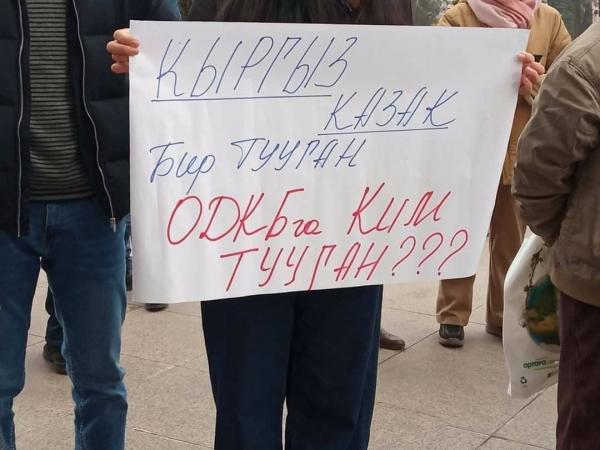 КЫРГЫЗ
КАЗАК
Бир ТУУГАН
ОДКБга КИМ
ТУУГАН???